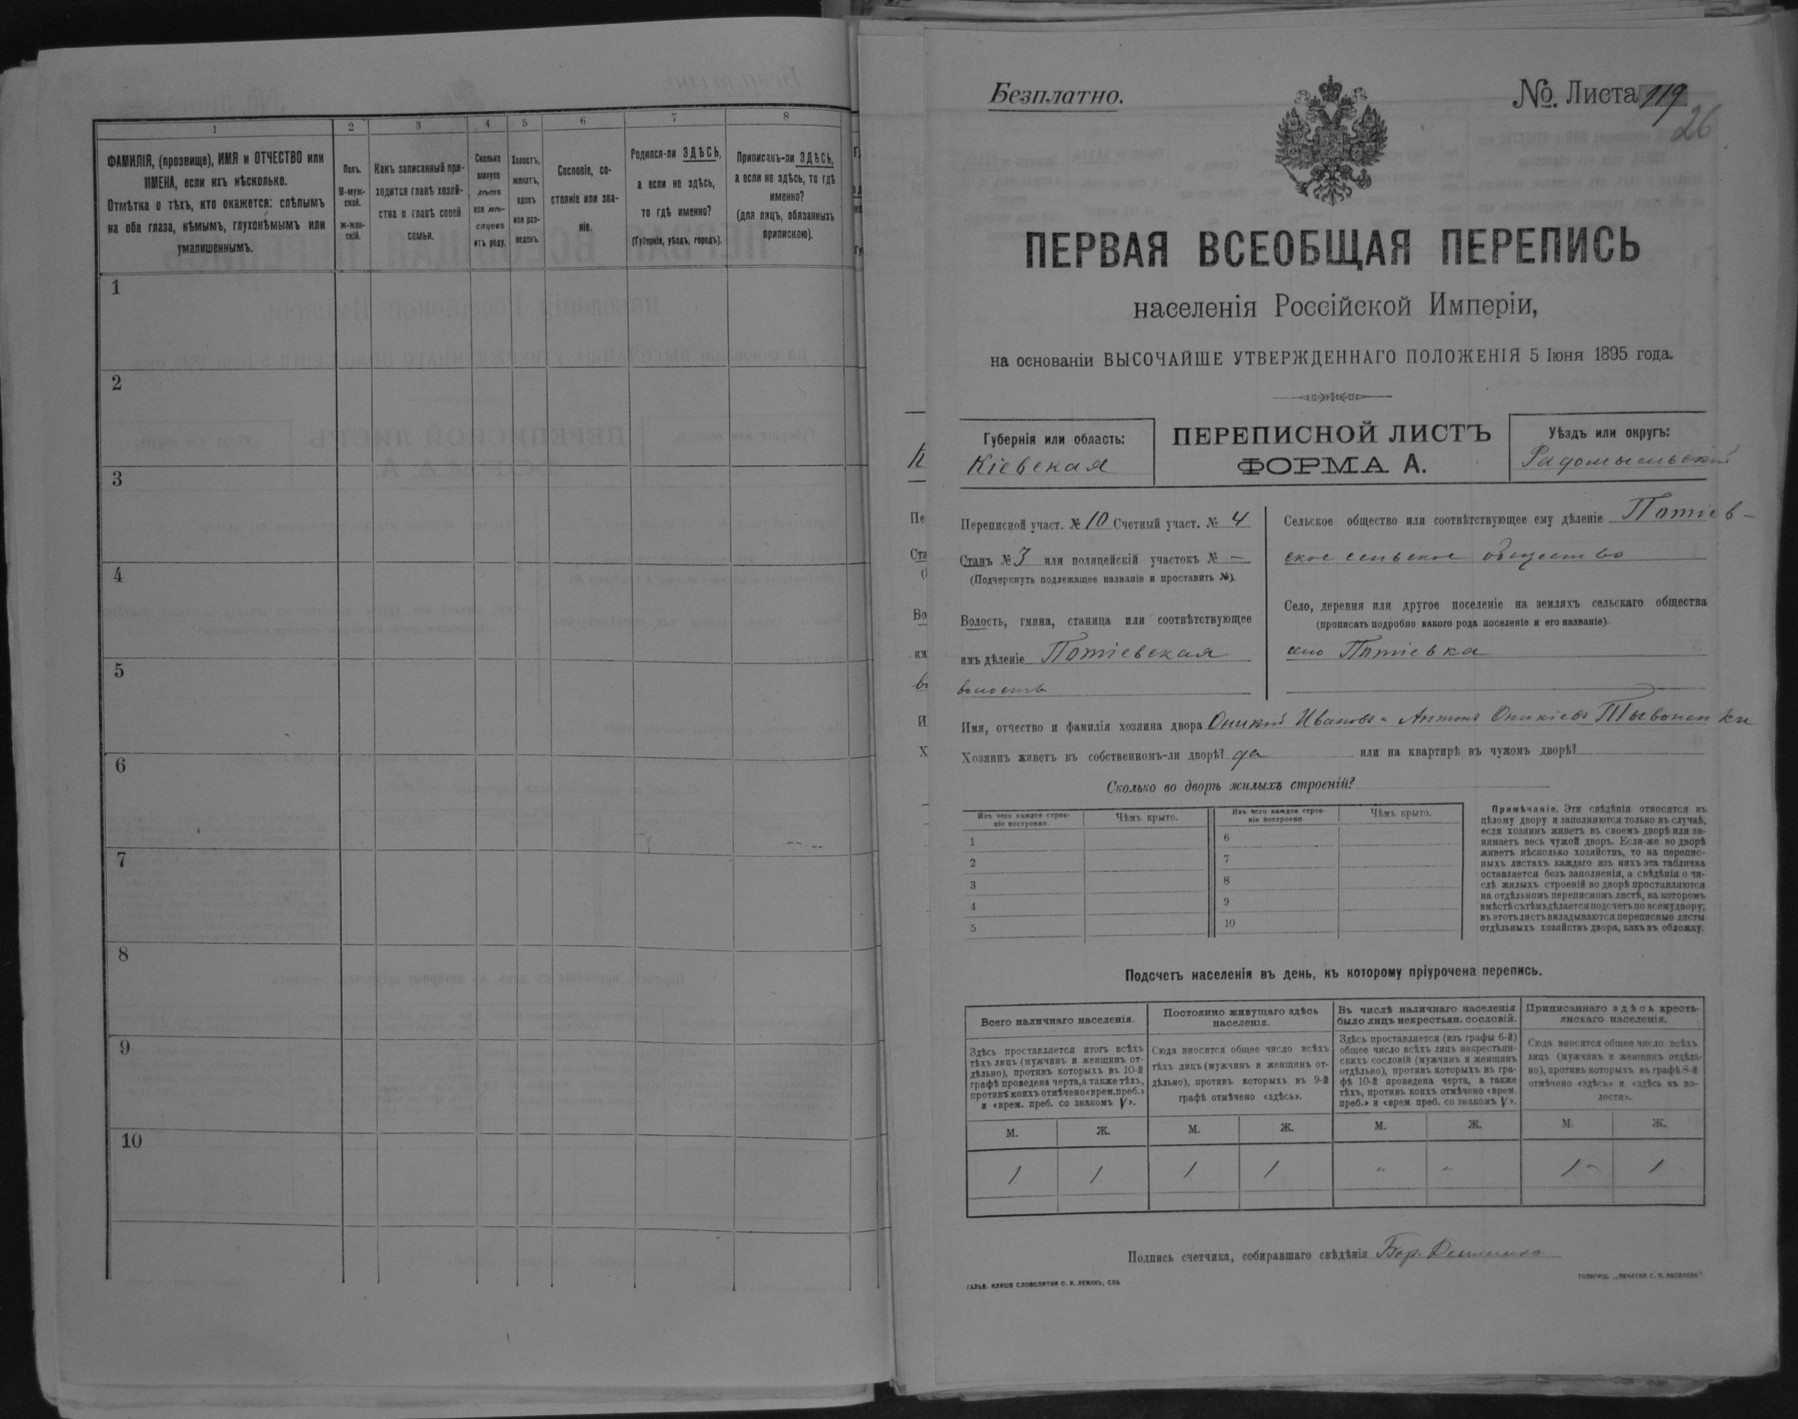 1
2
3
4
5
6
7
8
ФАМИЛІЯ, (прозвище), ИМЯ и ОТЧЕСТВО или
ИМЕНА, если ихъ нѣсколько.
Отмѣтка о тѣхъ, кто окажется: слѣпымъ
на оба глаза, нѣмымъ, глухонѣмымъ или
умалишеннымъ.
Полъ.
М-муж-
ской.
ж-жен-
скій.
Какъ записанный при-
ходится главѣ хозяй-
ства и главѣ своей
семьи.
Сколько
минуло
лѣтъ
или мѣ-
сяцевъ
отъ роду.
Холостъ,
женатъ,
вдовъ
или раз-
веденъ.
Сословіе, со-
стояніе или зва-
ніе.
Родился-ли ЗДѢСЬ,
а если не здѣсь,
то гдѣ именно?
(Губернія, уѣздъ, городъ).
Приписанъ-ли ЗДѢСЬ,
а если не здѣсь, то гдѣ
именно?
(для лицъ, обязанныхъ
припискою).
1
2
3
4
5
6
7
8
9
10
Безплатно.
№ Листа 119
26
ПЕРВАЯ ВСЕОБЩАЯ ПЕРЕПИСЬ
населенія Россійской Имперіи,
на основаніи ВЫСОЧАЙШЕ УТВЕРЖДЕННАГО ПОЛОЖЕНІЯ 5 Іюня 1895 года.
Губернія или область:
Кіевская
ПЕРЕПИСНОЙ ЛИСТЪ
ФОРМА А.
Уѣздъ или округъ:
Радомысльскій
Переписной участ. № 10 Счетный участ. № 4
Станъ № 3 или полицейскій участокъ № —
(Подчеркнуть подлежащее названіе и проставить №).
Волость, гмина, станица или соотвѣтствующее
имъ дѣленіе Потіевская
волость
Сельское общество или соотвѣтствующее ему дѣленіе Потіев-
ское сельское общество
Село, деревня или другое поселеніе на земляхъ сельскаго общества
(прописать подробно какого рода поселеніе и его названіе).
село Потіевка
Имя, отчество и фамилія хозяина двора Оникій Ивановъ и Антонъ Оникіевъ Тывоненки
Хозяинъ живетъ въ собственномъ-ли дворѣ? да или на квартирѣ въ чужомъ дворѣ?
Сколько во дворѣ жилыхъ строеній?
Изъ чего каждое строе-
ніе построено.
Чѣмъ крыто.
Изъ чего каждое строе-
ніе построено
Чѣмъ крыто.
1
2
3
4
5
6
7
8
9
10
Примѣчаніе. Эти свѣдѣнія относятся къ
цѣлому двору и заполняются только въ случаѣ,
если хозяинъ живетъ въ своемъ дворѣ или за-
нимаетъ весь чужой дворъ. Если-же во дворѣ
живетъ нѣсколько хозяйствъ, то на перепис-
ныхъ листахъ каждаго изъ нихъ эта табличка
оставляется безъ заполненія, а свѣдѣнія о чи-
слѣ жилыхъ строеній во дворѣ проставляются
на отдѣльномъ переписномъ листѣ, на которомъ
вмѣстѣ съ тѣмъ дѣлается подсчетъ по всему двору;
въ этотъ листъ вкладываются переписные листы
отдѣльныхъ хозяйствъ двора, какъ въ обложку.
Подсчетъ населенія въ день, къ которому пріурочена перепись.
Всего наличнаго населенія.
Постоянно живущаго здѣсь
населенія.
Въ числѣ наличнаго населенія
было лицъ некрестьян. сословій.
Приписаннаго здѣсь кресть-
янскаго населенія.
Здѣсь проставляется итогъ всѣхъ
тѣхъ лицъ (мужчинъ и женщинъ от-
дѣльно), противъ которыхъ въ 10-й
графѣ проведена черта, а также тѣхъ,
противъ коихъ отмѣчено «врем. преб.»
и «врем. преб. со знакомъ V».
Сюда вносится общее число всѣхъ
тѣхъ лицъ (мужчинъ и женщинъ от-
дѣльно), противъ которыхъ въ 9-й
графѣ отмѣчено «здѣсь».
Здѣсь проставляется (изъ графы 6-й)
общее число всѣхъ лицъ некрестьян-
скихъ сословій (мужчинъ и женщинъ
отдѣльно), противъ которыхъ въ гра-
фѣ 10-й проведена черта, а также
тѣхъ, противъ коихъ отмѣчено «врем.
преб.» и «врем преб. со знакомъ V».
Сюда вносится общее число всѣхъ
лицъ (мужчинъ и женщинъ отдѣль-
но), противъ которыхъ въ графѣ 8-й
отмѣчено «здѣсь» и «здѣсь въ во-
лости».
М. Ж. М. Ж. М. Ж. М. Ж.
1 1 1 1 " " 1 - 1
Подпись счетчика, собиравшаго свѣдѣнія Бор.
ГАЛЬВ. КЛИШЕ СЛОВОЛИТНИ О. И. ЛЕМАНЪ, СПБ
ТОВАРИЩ. „ПЕЧАТНЯ С. П. ЯКОВЛЕВА"